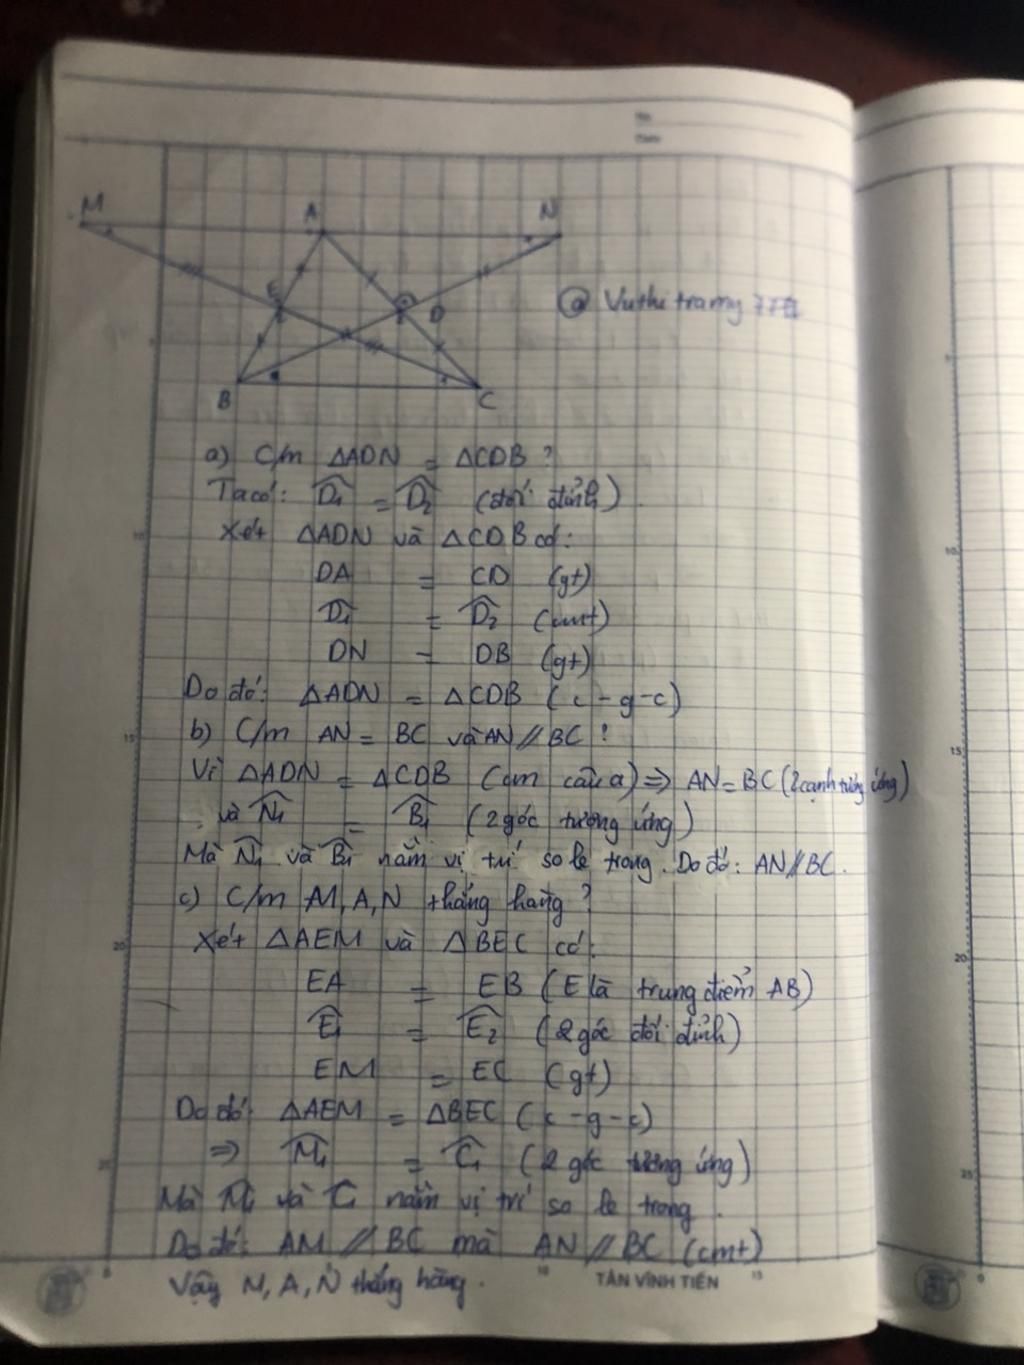 M A N
E D
@ Vuthi tramy
B C
a) C/m ΔADN = ΔCDB ?
Ta có: D̂₁ = D̂₂ (đối đỉnh).
Xét ΔADN và ΔCDB có:
DA = CD (gt)
D̂₁ = D̂₂ (cmt)
DN = DB (gt)
Do đó: ΔADN = ΔCDB (c-g-c)
b) C/m AN = BC và AN // BC ?
Vì ΔADN = ΔCDB (cm câu a) => AN = BC (2 cạnh tương ứng)
và N̂₁ = B̂₁ (2 góc tương ứng)
Mà N̂₁ và B̂₁ nằm vị trí so le trong. Do đó: AN // BC.
c) C/m M, A, N thẳng hàng ?
Xét ΔAEM và ΔBEC có:
EA = EB (E là trung điểm AB)
Ê₁ = Ê₂ (2 góc đối đỉnh)
EM = EC (gt)
Do đó: ΔAEM = ΔBEC (c-g-c)
=> M̂₁ = Ĉ₁ (2 góc tương ứng)
Mà M̂₁ và Ĉ₁ nằm vị trí so le trong.
Do đó: AM // BC mà AN // BC (cmt)
Vậy M, A, N thẳng hàng.
TÂN VĨNH TIẾN